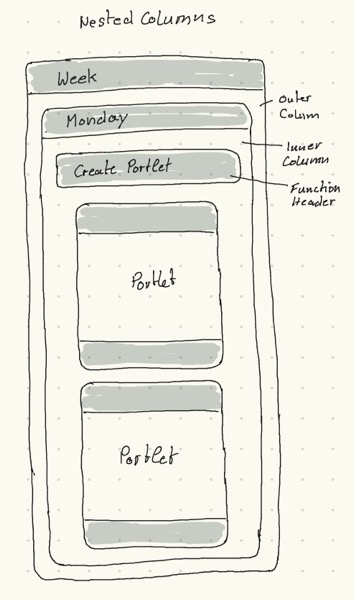 Nested Columns
Week
Outer
Column
Monday
Inner
Column
Create Portlet
Function
Header
Portlet
Portlet